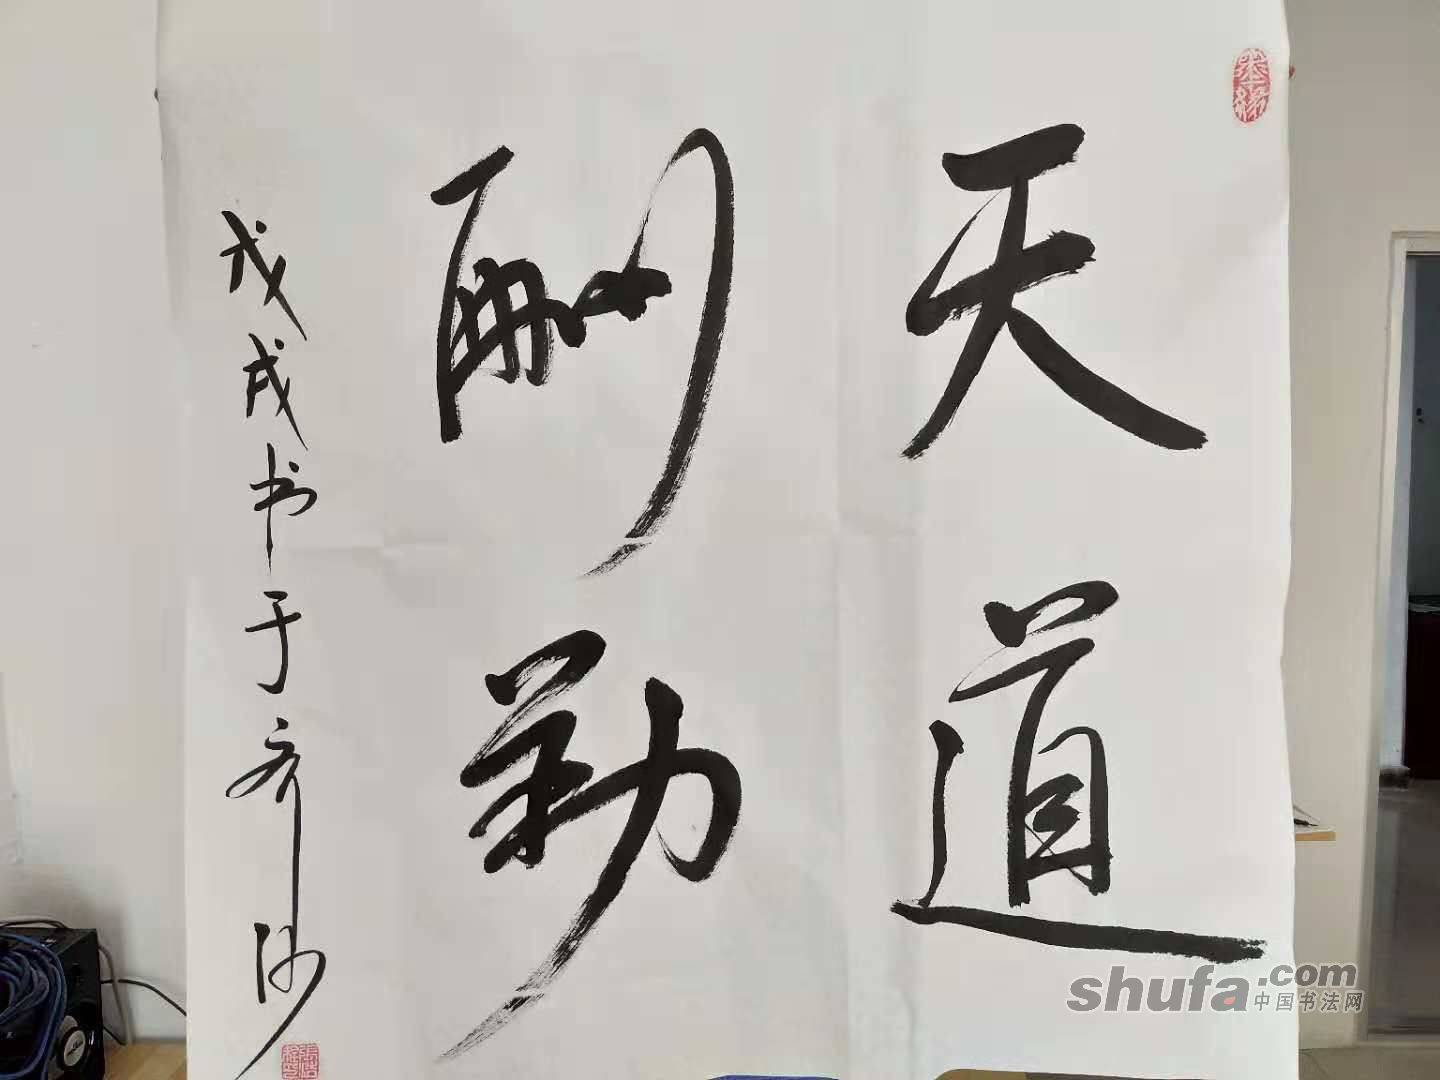 天道
酬勤
戊戌书于齐河
墨缘
shufa.com
中国书法网